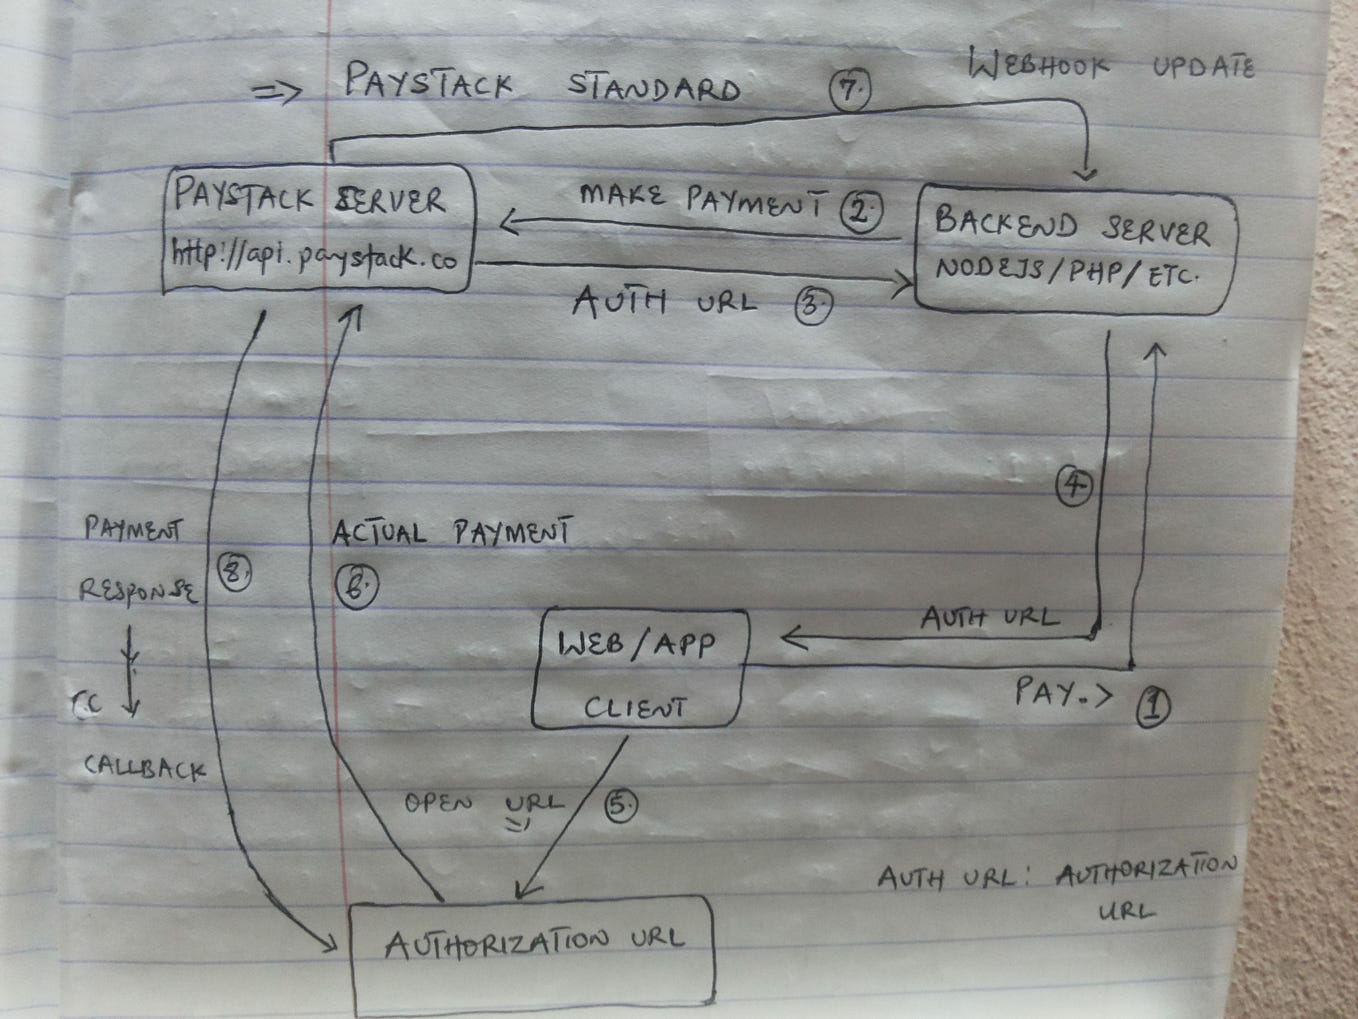 ⇒ PAYSTACK STANDARD
7.
WEBHOOK UPDATE
PAYSTACK SERVER
http://api.paystack.co
MAKE PAYMENT 2.
AUTH URL 3.
BACKEND SERVER
NODEJS/PHP/ETC.
4
PAYMENT
RESPONSE
8.
CALLBACK
ACTUAL PAYMENT
6.
WEB/APP
CLIENT
AUTH URL
PAY.> 1
OPEN URL 5.
AUTH URL: AUTHORIZATION
URL
AUTHORIZATION URL